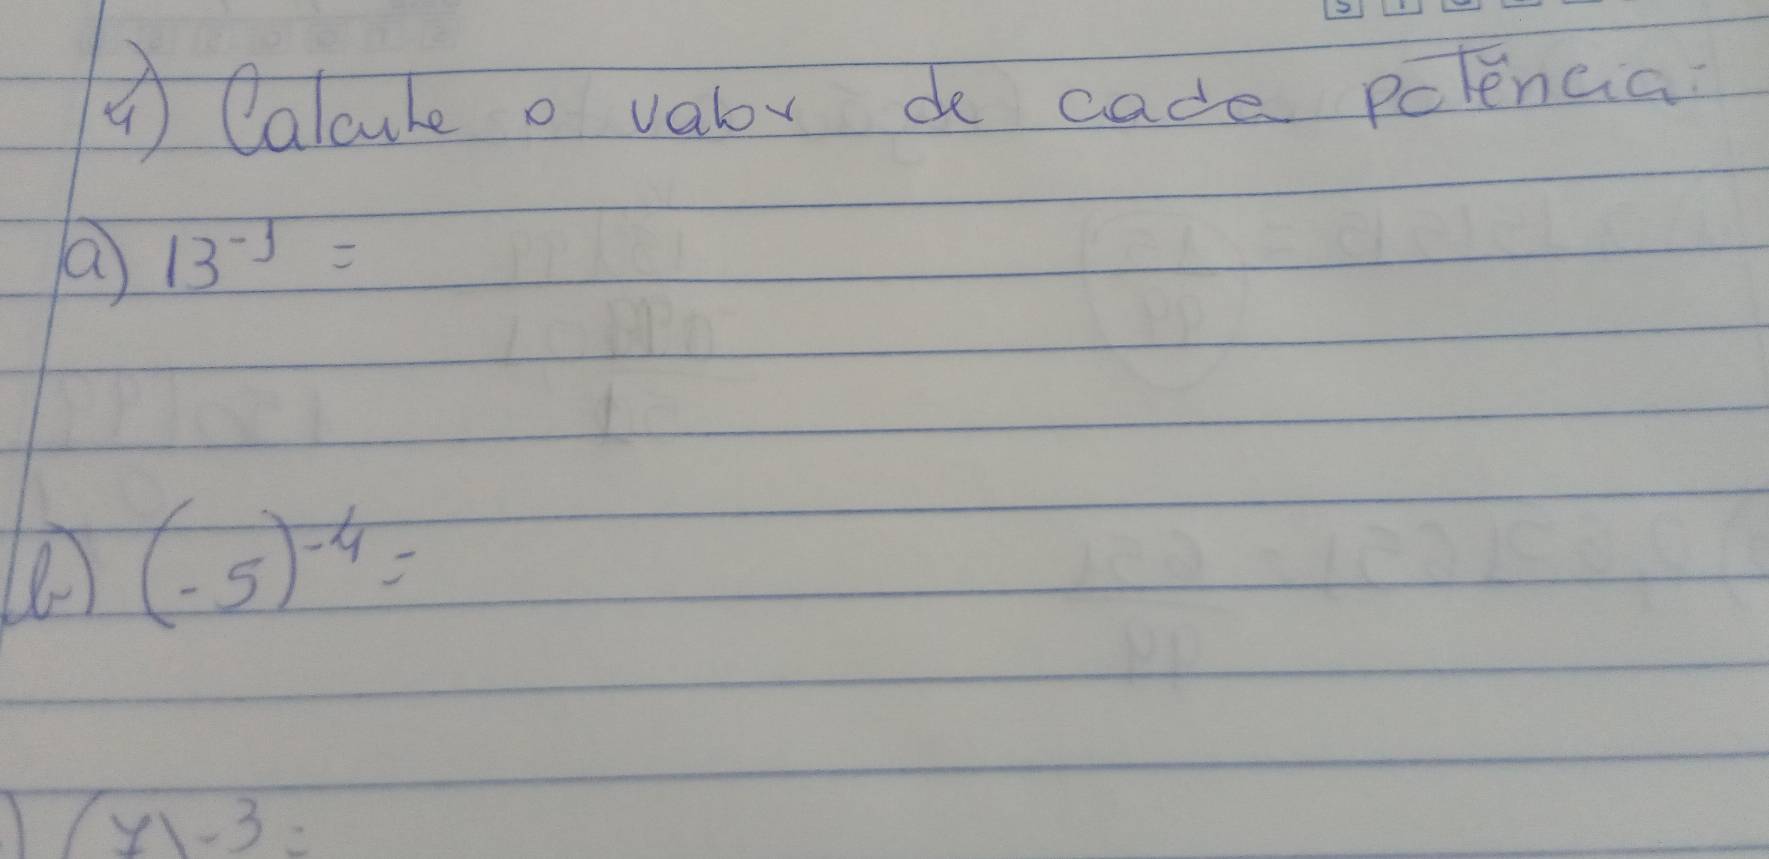 4) Calcule o valor de cada potência:
a) 13⁻¹ =
b) (-5)⁻⁴ =